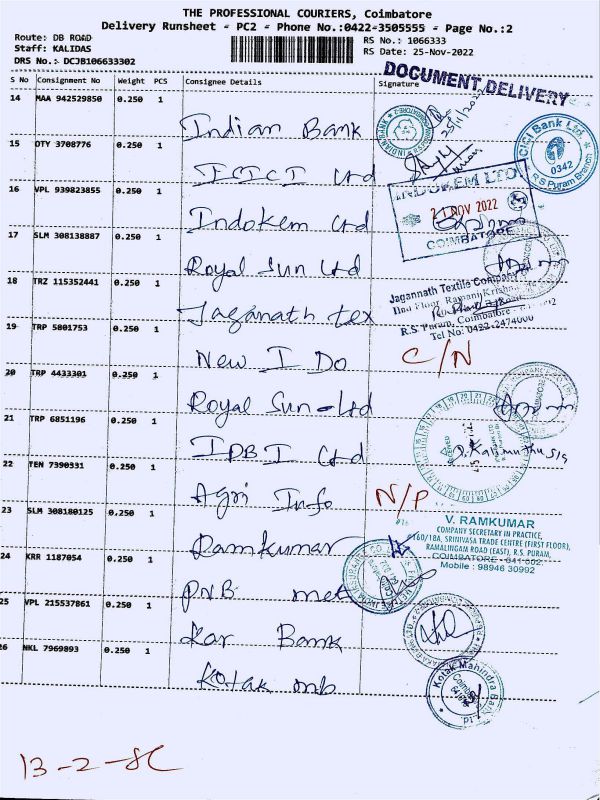 THE PROFESSIONAL COURIERS, Coimbatore
Delivery Runsheet - PC2 - Phone No.:0422-3505555 - Page No.:2
Route: DB ROAD
Staff: KALIDAS
DRS No.: DCJB106633302
RS No.: 1066333
RS Date: 25-Nov-2022
DOCUMENT DELIVERY
S No Consignment No Weight PCS Consignee Details Signature
14 MAA 942529850 0.250 1 Indian Bank
25/11/202
15 OTY 3708776 0.250 1 ICICI Ltd
ICICI Bank Ltd.
0342
R S Puram Branch
16 VPL 939823855 0.250 1 Indokem Ltd
INDOKEM LTD
21 NOV 2022
COIMBATORE
17 SLM 308138887 0.250 1 Royal Sun Ltd
18 TRZ 115352441 0.250 1 Jaganath tex
Jagannath Textile Company
R.S. Puram, Coimbatore
Tel No: 0422-2474000
19 TRP 5801753 0.250 1 New I Do
C/N
20 TRP 4433301 0.250 1 Royal Sun-Ltd
21 TRP 6851196 0.250 1 IDBI Ltd
22 TEN 7390331 0.250 1 Agri Info
N/P
23 SLM 308180125 0.250 1 Ramkumar
V. RAMKUMAR
COMPANY SECRETARY IN PRACTICE,
#160/18A, SRINIVASA TRADE CENTRE (FIRST FLOOR),
RAMALINGAM ROAD (EAST), R.S. PURAM,
COIMBATORE - 641 002.
Mobile : 98946 30992
24 KRR 1187054 0.250 1 PNB met
25 VPL 215537861 0.250 1 Kar Bank
26 NKL 7969893 0.250 1 Kotak mb
Kotak Mahindra Bank Ltd.
13-2-